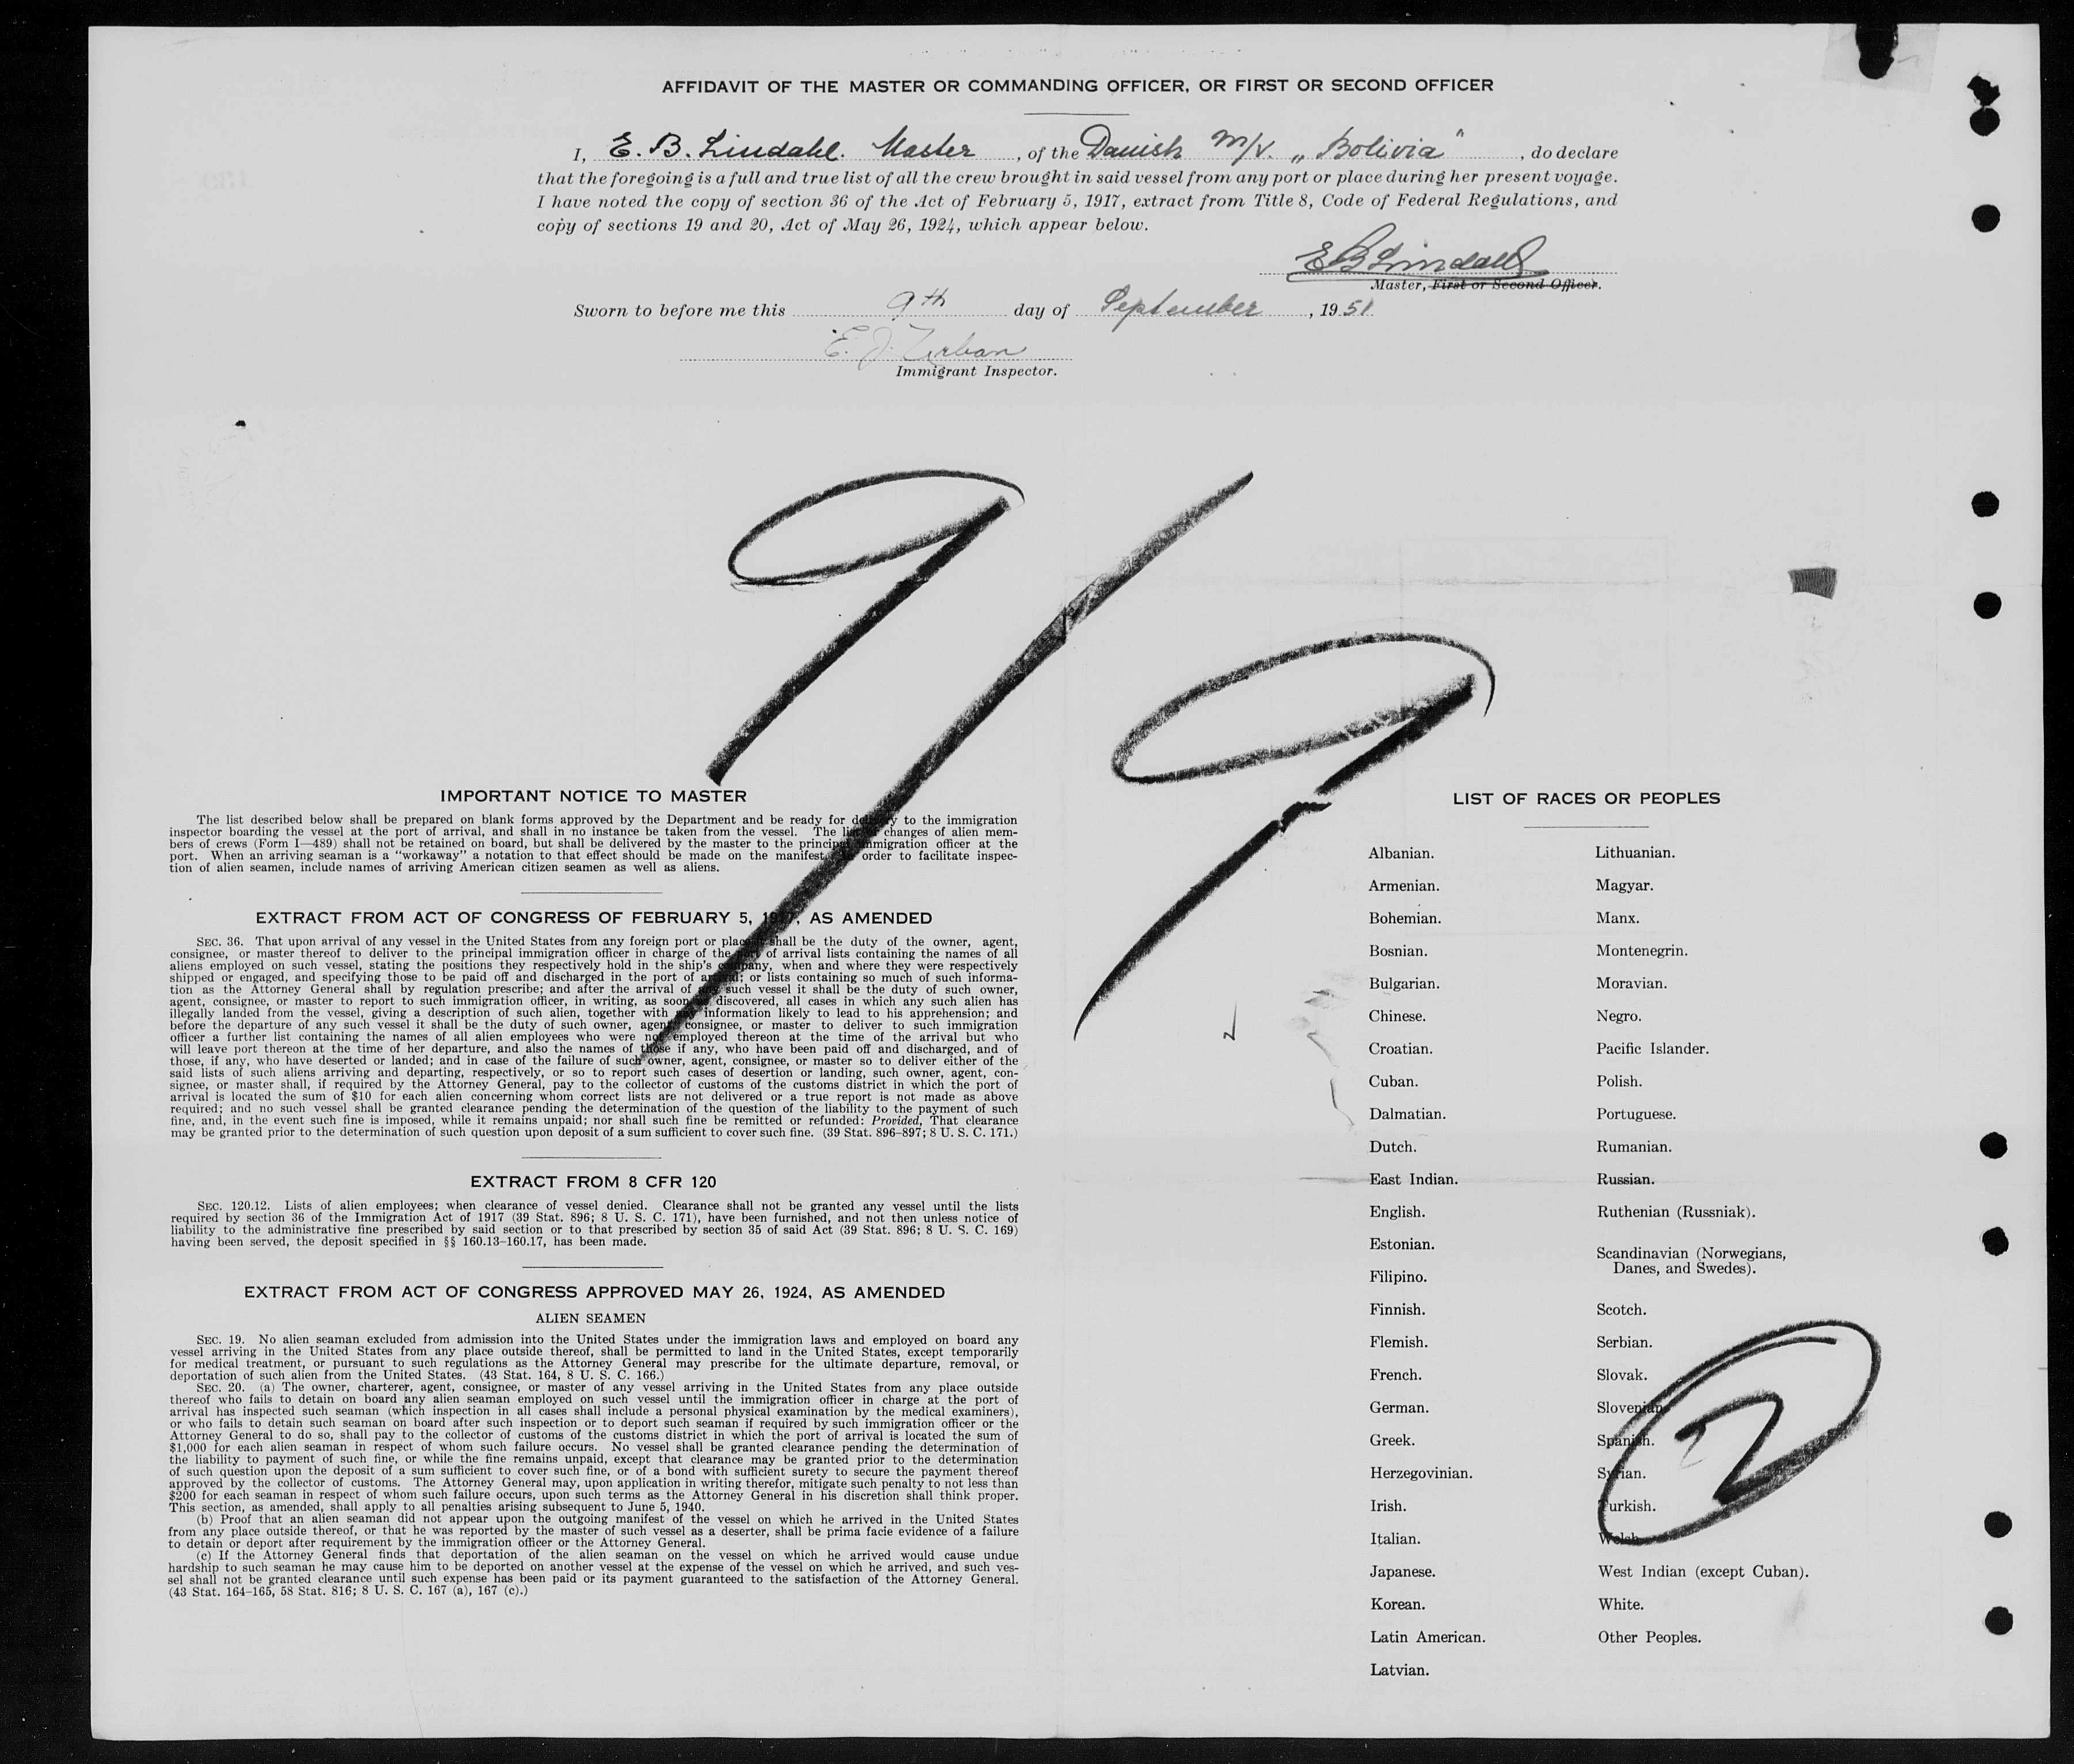 AFFIDAVIT OF THE MASTER OR COMMANDING OFFICER, OR FIRST OR SECOND OFFICER
I, E. B. Lindahl. Master , of the Danish M/V. „Bolivia" , do declare
that the foregoing is a full and true list of all the crew brought in said vessel from any port or place during her present voyage.
I have noted the copy of section 36 of the Act of February 5, 1917, extract from Title 8, Code of Federal Regulations, and
copy of sections 19 and 20, Act of May 26, 1924, which appear below.
E B Lindahl
Master, First or Second Officer.
Sworn to before me this 9th day of September , 1951
E. J. Urban
Immigrant Inspector.
9/9
IMPORTANT NOTICE TO MASTER
The list described below shall be prepared on blank forms approved by the Department and be ready for delivery to the immigration
inspector boarding the vessel at the port of arrival, and shall in no instance be taken from the vessel. The list of changes of alien mem-
bers of crews (Form I—489) shall not be retained on board, but shall be delivered by the master to the principal immigration officer at the
port. When an arriving seaman is a "workaway" a notation to that effect should be made on the manifest. In order to facilitate inspec-
tion of alien seamen, include names of arriving American citizen seamen as well as aliens.
EXTRACT FROM ACT OF CONGRESS OF FEBRUARY 5, 1917, AS AMENDED
SEC. 36. That upon arrival of any vessel in the United States from any foreign port or place it shall be the duty of the owner, agent,
consignee, or master thereof to deliver to the principal immigration officer in charge of the port of arrival lists containing the names of all
aliens employed on such vessel, stating the positions they respectively hold in the ship's company, when and where they were respectively
shipped or engaged, and specifying those to be paid off and discharged in the port of arrival; or lists containing so much of such informa-
tion as the Attorney General shall by regulation prescribe; and after the arrival of any such vessel it shall be the duty of such owner,
agent, consignee, or master to report to such immigration officer, in writing, as soon as discovered, all cases in which any such alien has
illegally landed from the vessel, giving a description of such alien, together with any information likely to lead to his apprehension; and
before the departure of any such vessel it shall be the duty of such owner, agent, consignee, or master to deliver to such immigration
officer a further list containing the names of all alien employees who were not employed thereon at the time of the arrival but who
will leave port thereon at the time of her departure, and also the names of those if any, who have been paid off and discharged, and of
those, if any, who have deserted or landed; and in case of the failure of such owner, agent, consignee, or master so to deliver either of the
said lists of such aliens arriving and departing, respectively, or so to report such cases of desertion or landing, such owner, agent, con-
signee, or master shall, if required by the Attorney General, pay to the collector of customs of the customs district in which the port of
arrival is located the sum of $10 for each alien concerning whom correct lists are not delivered or a true report is not made as above
required; and no such vessel shall be granted clearance pending the determination of the question of the liability to the payment of such
fine, and, in the event such fine is imposed, while it remains unpaid; nor shall such fine be remitted or refunded: Provided, That clearance
may be granted prior to the determination of such question upon deposit of a sum sufficient to cover such fine. (39 Stat. 896–897; 8 U. S. C. 171.)
EXTRACT FROM 8 CFR 120
SEC. 120.12. Lists of alien employees; when clearance of vessel denied. Clearance shall not be granted any vessel until the lists
required by section 36 of the Immigration Act of 1917 (39 Stat. 896; 8 U. S. C. 171), have been furnished, and not then unless notice of
liability to the administrative fine prescribed by said section or to that prescribed by section 35 of said Act (39 Stat. 896; 8 U. S. C. 169)
having been served, the deposit specified in §§ 160.13–160.17, has been made.
EXTRACT FROM ACT OF CONGRESS APPROVED MAY 26, 1924, AS AMENDED
ALIEN SEAMEN
SEC. 19. No alien seaman excluded from admission into the United States under the immigration laws and employed on board any
vessel arriving in the United States from any place outside thereof, shall be permitted to land in the United States, except temporarily
for medical treatment, or pursuant to such regulations as the Attorney General may prescribe for the ultimate departure, removal, or
deportation of such alien from the United States. (43 Stat. 164, 8 U. S. C. 166.)
SEC. 20. (a) The owner, charterer, agent, consignee, or master of any vessel arriving in the United States from any place outside
thereof who fails to detain on board any alien seaman employed on such vessel until the immigration officer in charge at the port of
arrival has inspected such seaman (which inspection in all cases shall include a personal physical examination by the medical examiners),
or who fails to detain such seaman on board after such inspection or to deport such seaman if required by such immigration officer or the
Attorney General to do so, shall pay to the collector of customs of the customs district in which the port of arrival is located the sum of
$1,000 for each alien seaman in respect of whom such failure occurs. No vessel shall be granted clearance pending the determination of
the liability to payment of such fine, or while the fine remains unpaid, except that clearance may be granted prior to the determination
of such question upon the deposit of a sum sufficient to cover such fine, or of a bond with sufficient surety to secure the payment thereof
approved by the collector of customs. The Attorney General may, upon application in writing therefor, mitigate such penalty to not less than
$200 for each seaman in respect of whom such failure occurs, upon such terms as the Attorney General in his discretion shall think proper.
This section, as amended, shall apply to all penalties arising subsequent to June 5, 1940.
(b) Proof that an alien seaman did not appear upon the outgoing manifest of the vessel on which he arrived in the United States
from any place outside thereof, or that he was reported by the master of such vessel as a deserter, shall be prima facie evidence of a failure
to detain or deport after requirement by the immigration officer or the Attorney General.
(c) If the Attorney General finds that deportation of the alien seaman on the vessel on which he arrived would cause undue
hardship to such seaman he may cause him to be deported on another vessel at the expense of the vessel on which he arrived, and such ves-
sel shall not be granted clearance until such expense has been paid or its payment guaranteed to the satisfaction of the Attorney General.
(43 Stat. 164–165, 58 Stat. 816; 8 U. S. C. 167 (a), 167 (c).)
LIST OF RACES OR PEOPLES
Albanian.
Armenian.
Bohemian.
Bosnian.
Bulgarian.
Chinese.
Croatian.
Cuban.
Dalmatian.
Dutch.
East Indian.
English.
Estonian.
Filipino.
Finnish.
Flemish.
French.
German.
Greek.
Herzegovinian.
Irish.
Italian.
Japanese.
Korean.
Latin American.
Latvian.
Lithuanian.
Magyar.
Manx.
Montenegrin.
Moravian.
Negro.
Pacific Islander.
Polish.
Portuguese.
Rumanian.
Russian.
Ruthenian (Russniak).
Scandinavian (Norwegians,
Danes, and Swedes).
Scotch.
Serbian.
Slovak.
Slovenian.
Spanish.
Syrian.
Turkish.
Welsh.
West Indian (except Cuban).
White.
Other Peoples.
2